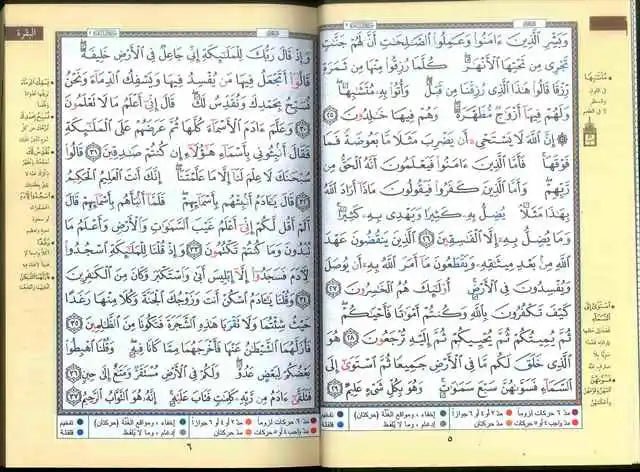 وَبَشِّرِ ٱلَّذِينَ ءَامَنُوا۟ وَعَمِلُوا۟ ٱلصَّٰلِحَٰتِ أَنَّ لَهُمْ جَنَّٰتٍ
تَجْرِى مِن تَحْتِهَا ٱلْأَنْهَٰرُ ۖ كُلَّمَا رُزِقُوا۟ مِنْهَا مِن ثَمَرَةٍ
رِّزْقًا ۙ قَالُوا۟ هَٰذَا ٱلَّذِى رُزِقْنَا مِن قَبْلُ ۖ وَأُتُوا۟ بِهِۦ مُتَشَٰبِهًا ۖ
وَلَهُمْ فِيهَآ أَزْوَٰجٌ مُّطَهَّرَةٌ ۖ وَهُمْ فِيهَا خَٰلِدُونَ ﴿٢٥﴾
۞ إِنَّ ٱللَّهَ لَا يَسْتَحْىِۦٓ أَن يَضْرِبَ مَثَلًا مَّا بَعُوضَةً فَمَا
فَوْقَهَا ۚ فَأَمَّا ٱلَّذِينَ ءَامَنُوا۟ فَيَعْلَمُونَ أَنَّهُ ٱلْحَقُّ مِن
رَّبِّهِمْ ۖ وَأَمَّا ٱلَّذِينَ كَفَرُوا۟ فَيَقُولُونَ مَاذَآ أَرَادَ ٱللَّهُ
بِهَٰذَا مَثَلًا ۘ يُضِلُّ بِهِۦ كَثِيرًا وَيَهْدِى بِهِۦ كَثِيرًا ۚ
وَمَا يُضِلُّ بِهِۦٓ إِلَّا ٱلْفَٰسِقِينَ ﴿٢٦﴾ ٱلَّذِينَ يَنقُضُونَ عَهْدَ
ٱللَّهِ مِنۢ بَعْدِ مِيثَٰقِهِۦ وَيَقْطَعُونَ مَآ أَمَرَ ٱللَّهُ بِهِۦٓ أَن يُوصَلَ
وَيُفْسِدُونَ فِى ٱلْأَرْضِ ۚ أُو۟لَٰٓئِكَ هُمُ ٱلْخَٰسِرُونَ ﴿٢٧﴾
كَيْفَ تَكْفُرُونَ بِٱللَّهِ وَكُنتُمْ أَمْوَٰتًا فَأَحْيَٰكُمْ ۖ
ثُمَّ يُمِيتُكُمْ ثُمَّ يُحْيِيكُمْ ثُمَّ إِلَيْهِ تُرْجَعُونَ ﴿٢٨﴾ هُوَ
ٱلَّذِى خَلَقَ لَكُم مَّا فِى ٱلْأَرْضِ جَمِيعًا ثُمَّ ٱسْتَوَىٰٓ إِلَى
ٱلسَّمَآءِ فَسَوَّىٰهُنَّ سَبْعَ سَمَٰوَٰتٍ ۚ وَهُوَ بِكُلِّ شَىْءٍ عَلِيمٌ ﴿٢٩﴾
مدّ ٦ حركات لزوماً مدّ ٢ أو ٤ أو ٦ جوازاً إخفاء، ومواقع الغُنَّة (حركتان) تفخيم
مدّ واجب ٤ أو ٥ حركات مدّ حركتان إدغام، وما لا يُلفَظ قلقلة
٥
البقرة
وَإِذْ قَالَ رَبُّكَ لِلْمَلَٰٓئِكَةِ إِنِّى جَاعِلٌ فِى ٱلْأَرْضِ خَلِيفَةً ۖ
قَالُوٓا۟ أَتَجْعَلُ فِيهَا مَن يُفْسِدُ فِيهَا وَيَسْفِكُ ٱلدِّمَآءَ وَنَحْنُ
نُسَبِّحُ بِحَمْدِكَ وَنُقَدِّسُ لَكَ ۖ قَالَ إِنِّىٓ أَعْلَمُ مَا لَا تَعْلَمُونَ
﴿٣٠﴾ وَعَلَّمَ ءَادَمَ ٱلْأَسْمَآءَ كُلَّهَا ثُمَّ عَرَضَهُمْ عَلَى ٱلْمَلَٰٓئِكَةِ
فَقَالَ أَنۢبِـُٔونِى بِأَسْمَآءِ هَٰٓؤُلَآءِ إِن كُنتُمْ صَٰدِقِينَ ﴿٣١﴾ قَالُوا۟
سُبْحَٰنَكَ لَا عِلْمَ لَنَآ إِلَّا مَا عَلَّمْتَنَآ ۖ إِنَّكَ أَنتَ ٱلْعَلِيمُ ٱلْحَكِيمُ
﴿٣٢﴾ قَالَ يَٰٓـَٔادَمُ أَنۢبِئْهُم بِأَسْمَآئِهِمْ ۖ فَلَمَّآ أَنۢبَأَهُم بِأَسْمَآئِهِمْ قَالَ
أَلَمْ أَقُل لَّكُمْ إِنِّىٓ أَعْلَمُ غَيْبَ ٱلسَّمَٰوَٰتِ وَٱلْأَرْضِ وَأَعْلَمُ مَا
تُبْدُونَ وَمَا كُنتُمْ تَكْتُمُونَ ﴿٣٣﴾ وَإِذْ قُلْنَا لِلْمَلَٰٓئِكَةِ ٱسْجُدُوا۟
لِـَٔادَمَ فَسَجَدُوٓا۟ إِلَّآ إِبْلِيسَ أَبَىٰ وَٱسْتَكْبَرَ وَكَانَ مِنَ ٱلْكَٰفِرِينَ
﴿٣٤﴾ وَقُلْنَا يَٰٓـَٔادَمُ ٱسْكُنْ أَنتَ وَزَوْجُكَ ٱلْجَنَّةَ وَكُلَا مِنْهَا رَغَدًا
حَيْثُ شِئْتُمَا وَلَا تَقْرَبَا هَٰذِهِ ٱلشَّجَرَةَ فَتَكُونَا مِنَ ٱلظَّٰلِمِينَ ﴿٣٥﴾
فَأَزَلَّهُمَا ٱلشَّيْطَٰنُ عَنْهَا فَأَخْرَجَهُمَا مِمَّا كَانَا فِيهِ ۖ وَقُلْنَا ٱهْبِطُوا۟
بَعْضُكُمْ لِبَعْضٍ عَدُوٌّ ۖ وَلَكُمْ فِى ٱلْأَرْضِ مُسْتَقَرٌّ وَمَتَٰعٌ إِلَىٰ حِينٍ ﴿٣٦﴾
فَتَلَقَّىٰٓ ءَادَمُ مِن رَّبِّهِۦ كَلِمَٰتٍ فَتَابَ عَلَيْهِ ۚ إِنَّهُۥ هُوَ ٱلتَّوَّابُ ٱلرَّحِيمُ ﴿٣٧﴾
مدّ ٦ حركات لزوماً مدّ ٢ أو ٤ أو ٦ جوازاً إخفاء، ومواقع الغُنَّة (حركتان) تفخيم
مدّ واجب ٤ أو ٥ حركات مدّ حركتان إدغام، وما لا يُلفَظ قلقلة
٦